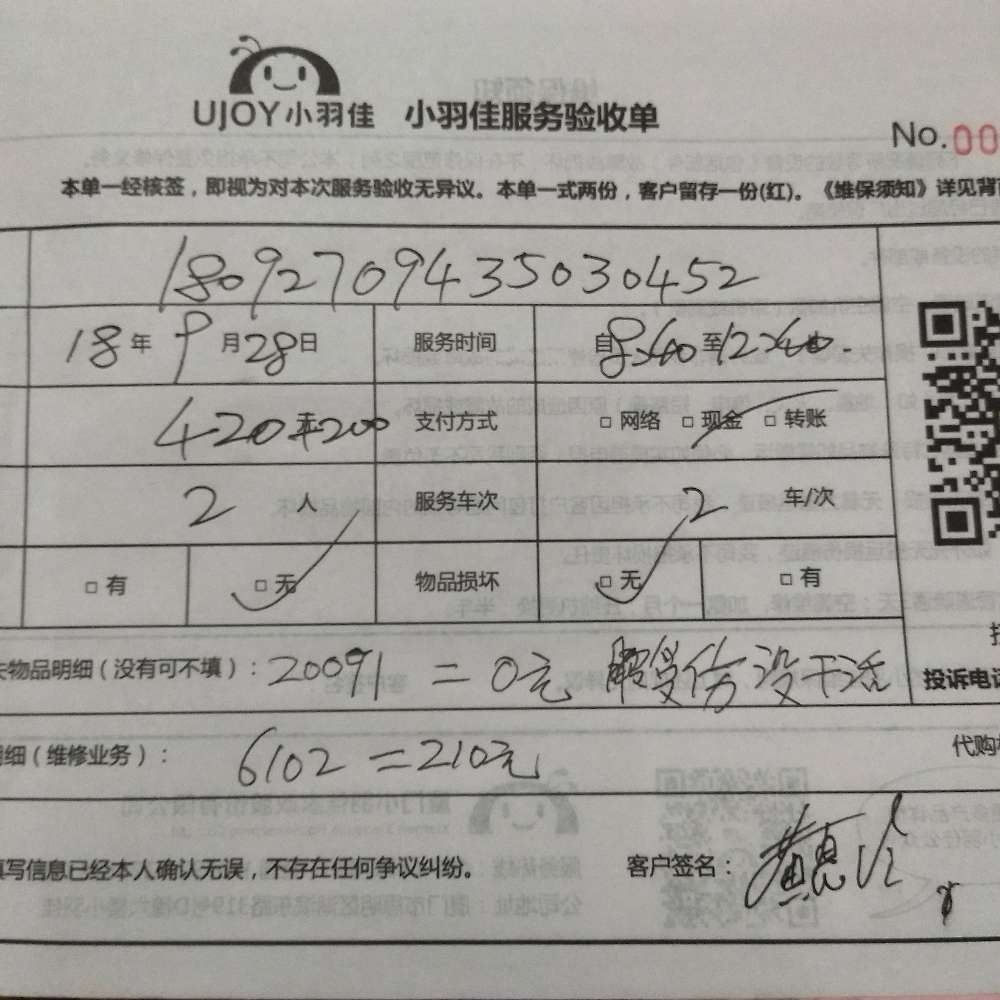 UJOY小羽佳 小羽佳服务验收单
No.00
本单一经核签，即视为对本次服务验收无异议。本单一式两份，客户留存一份(红)。《维保须知》详见背
18092709435030452
18年 9月28日 服务时间 自8:40至12:40
420 200 支付方式 □ 网络 □ 现金 □ 转账
2 人 服务车次 2 车/次
□ 有 □ 无 物品损坏 □ 无 □ 有
物品明细（没有可不填）： 20091 = 0元 受伤没干活
投诉电话
细（维修业务）： 6102 = 210元
代购
写信息已经本人确认无误，不存在任何争议纠纷。 客户签名： 黄惠